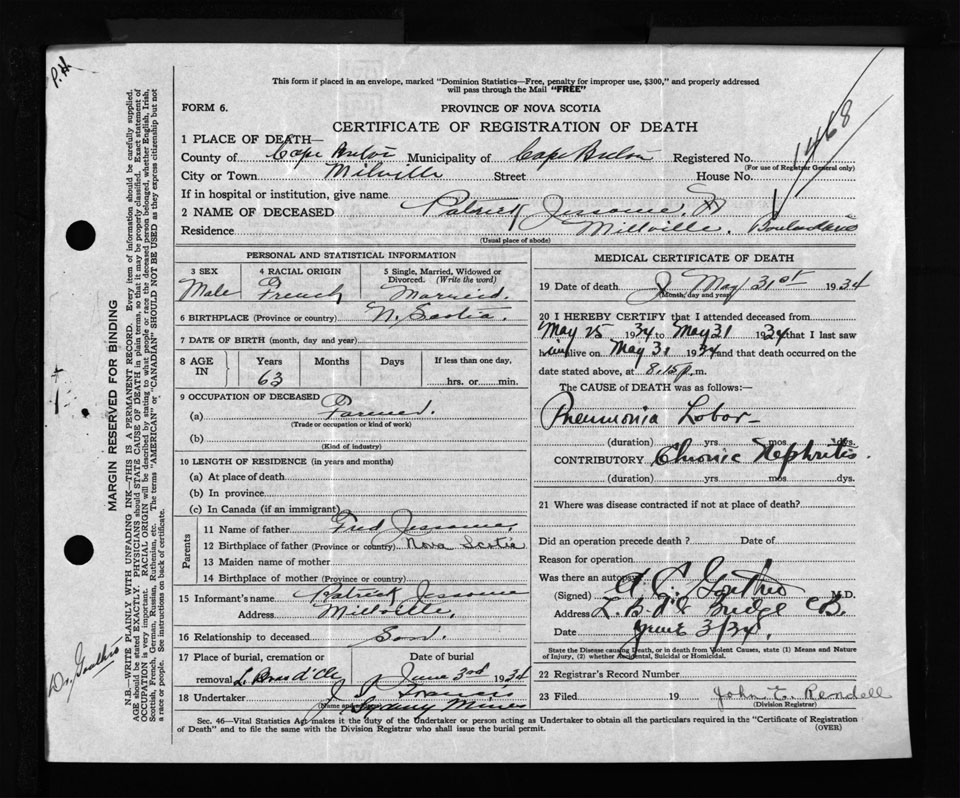 P.H.
This form if placed in an envelope, marked "Dominion Statistics—Free, penalty for improper use, $300," and properly addressed
will pass through the Mail "FREE"
FORM 6.
PROVINCE OF NOVA SCOTIA
CERTIFICATE OF REGISTRATION OF DEATH
1468
1 PLACE OF DEATH—
County of Cape Breton Municipality of Cape Breton Registered No.
(For use of Registrar General only)
City or Town Milville Street House No.
If in hospital or institution, give name
2 NAME OF DECEASED Patrick Jessome, Sr
Residence Millville, Boulardarie
(Usual place of abode)
PERSONAL AND STATISTICAL INFORMATION
3 SEX 4 RACIAL ORIGIN 5 Single, Married, Widowed or
Divorced. (Write the word)
Male French Married.
6 BIRTHPLACE (Province or country) N. Scotia.
7 DATE OF BIRTH (month, day and year)
8 AGE IN Years Months Days If less than one day,
63 hrs. or min.
9 OCCUPATION OF DECEASED
(a) Farmer.
(Trade or occupation or kind of work)
(b)
(Kind of industry)
10 LENGTH OF RESIDENCE (in years and months)
(a) At place of death
(b) In province
(c) In Canada (if an immigrant)
Parents
11 Name of father Fred Jessome
12 Birthplace of father (Province or country) Nova Scotia
13 Maiden name of mother
14 Birthplace of mother (Province or country)
15 Informant's name Patrick Jessome
Address Millville,
16 Relationship to deceased Son.
17 Place of burial, cremation or Date of burial
removal L. Bras d'Or June 3rd 1934
18 Undertaker J. P. Francis
(Name and
Sydney Mines
MEDICAL CERTIFICATE OF DEATH
19 Date of death May 31st 1934
(Month, day and year)
20 I HEREBY CERTIFY that I attended deceased from
May 25 1934 to May 31 1934 that I last saw
him alive on May 31 1934 and that death occurred on
date stated above, at 8.15 p. m.
The CAUSE of DEATH was as follows:—
Pneumonia Lobar—
(duration) yrs. mos. dys.
CONTRIBUTORY Chronic Nephritis.
(duration) yrs. mos. dys.
21 Where was disease contracted if not at place of death?
Did an operation precede death? Date of
Reason for operation
Was there an autopsy
(Signed) Gouthro M.D.
Address L. B d'O Bridge C B.
Date June 3/34.
State the Disease causing Death, or in death from Violent Causes, state (1) Means and
Nature of Injury, (2) whether Accidental, Suicidal or Homicidal.
22 Registrar's Record Number
23 Filed 19 John E. Rendell
(Division Registrar)
Sec. 46—Vital Statistics Act makes it the duty of the Undertaker or person acting as Undertaker to obtain all the particulars required in the "Certificate of Registration
of Death" and to file the same with the Division Registrar who shall issue the burial permit.
(OVER)
MARGIN RESERVED FOR BINDING
N.B.—WRITE PLAINLY WITH UNFADING INK—THIS IS A PERMANENT RECORD. Every item of information should be carefully supplied.
AGE should be stated EXACTLY. PHYSICIANS should STATE CAUSE OF DEATH in plain terms, so that it may be properly classified. Exact statement of
OCCUPATION is very important. RACIAL ORIGIN will be described by stating to what people or race the deceased person belonged, whether English, Irish,
Scottish, French, German, Russian, Ruthenian, etc. The terms "AMERICAN" or "CANADIAN" SHOULD NOT BE USED as they express citizenship but not
a race or people. See instructions on back of certificate.
Dr. Gouthro